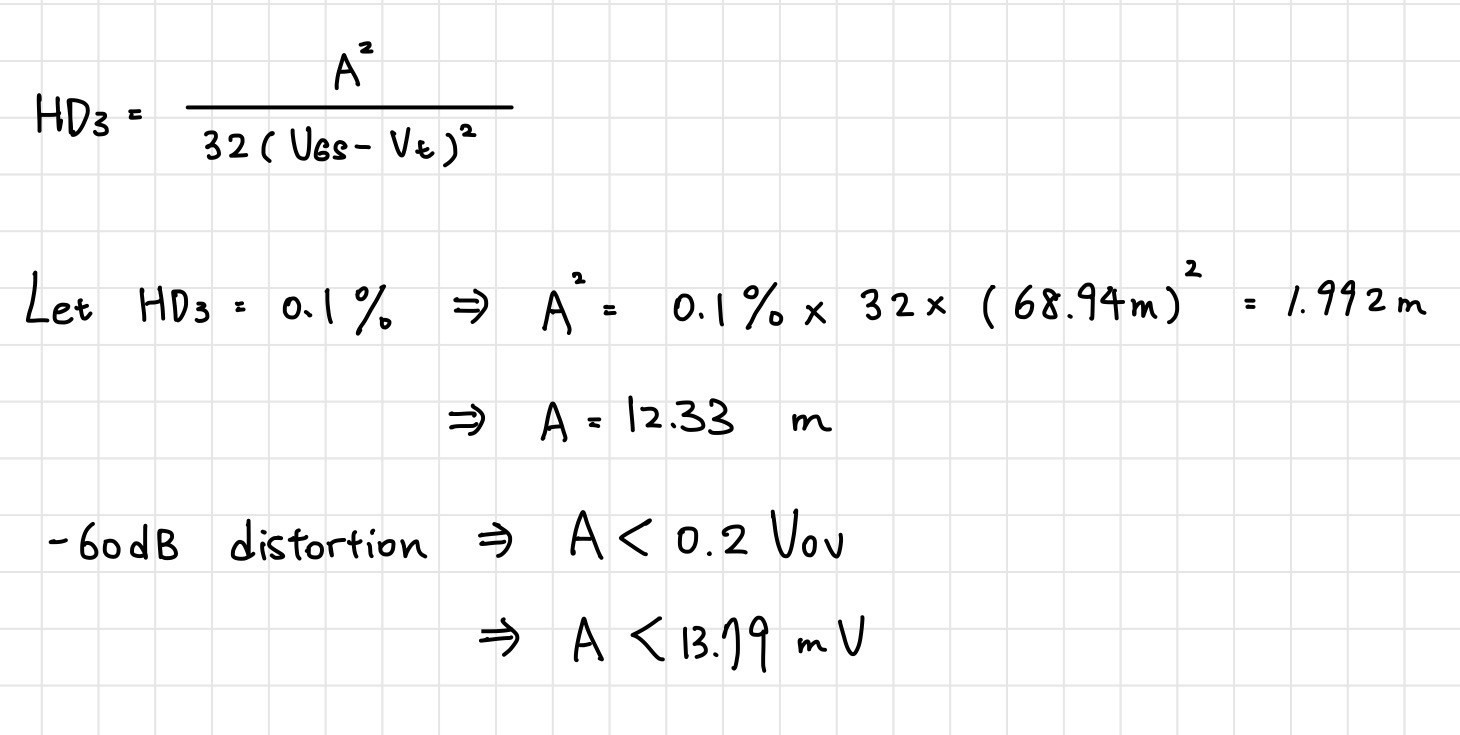 HD₃ = A² / 32(VGS - Vt)²
Let HD₃ = 0.1% ⇒ A² = 0.1% × 32 × (68.94m)² = 1.992m
⇒ A = 12.33 m
-60dB distortion ⇒ A < 0.2 Vov
⇒ A < 13.79 mV